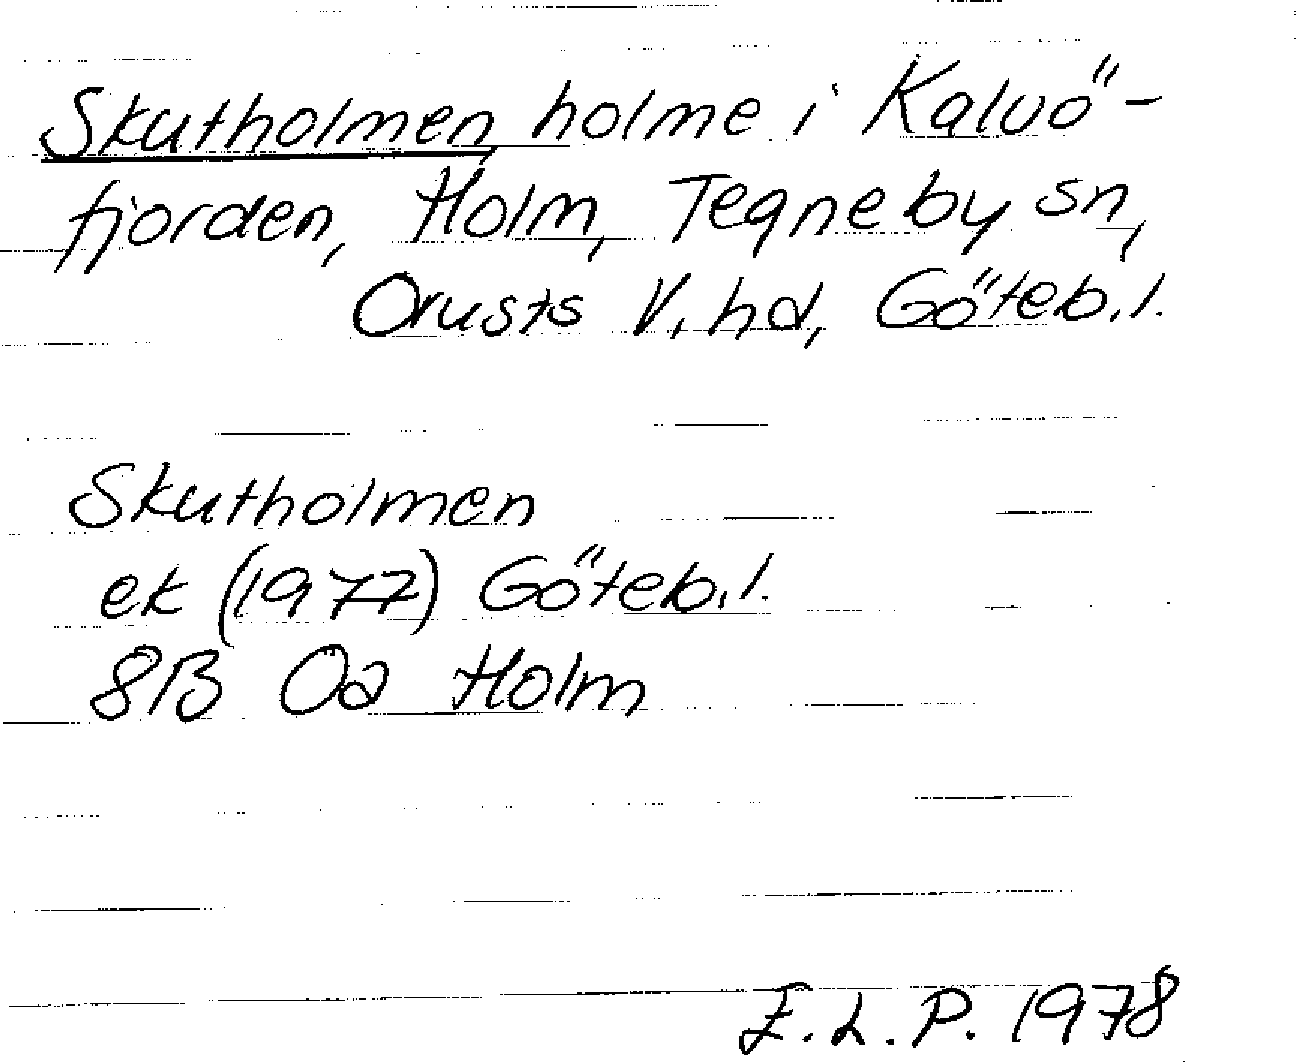 Skutholmen, holme i Kalvö-
fjorden, Holm, Tegneby sn,
Orusts V. hd, Göteb. l.
Skutholmen
ek (1977) Göteb. l.
8B 0a Holm
E. L. P. 1978